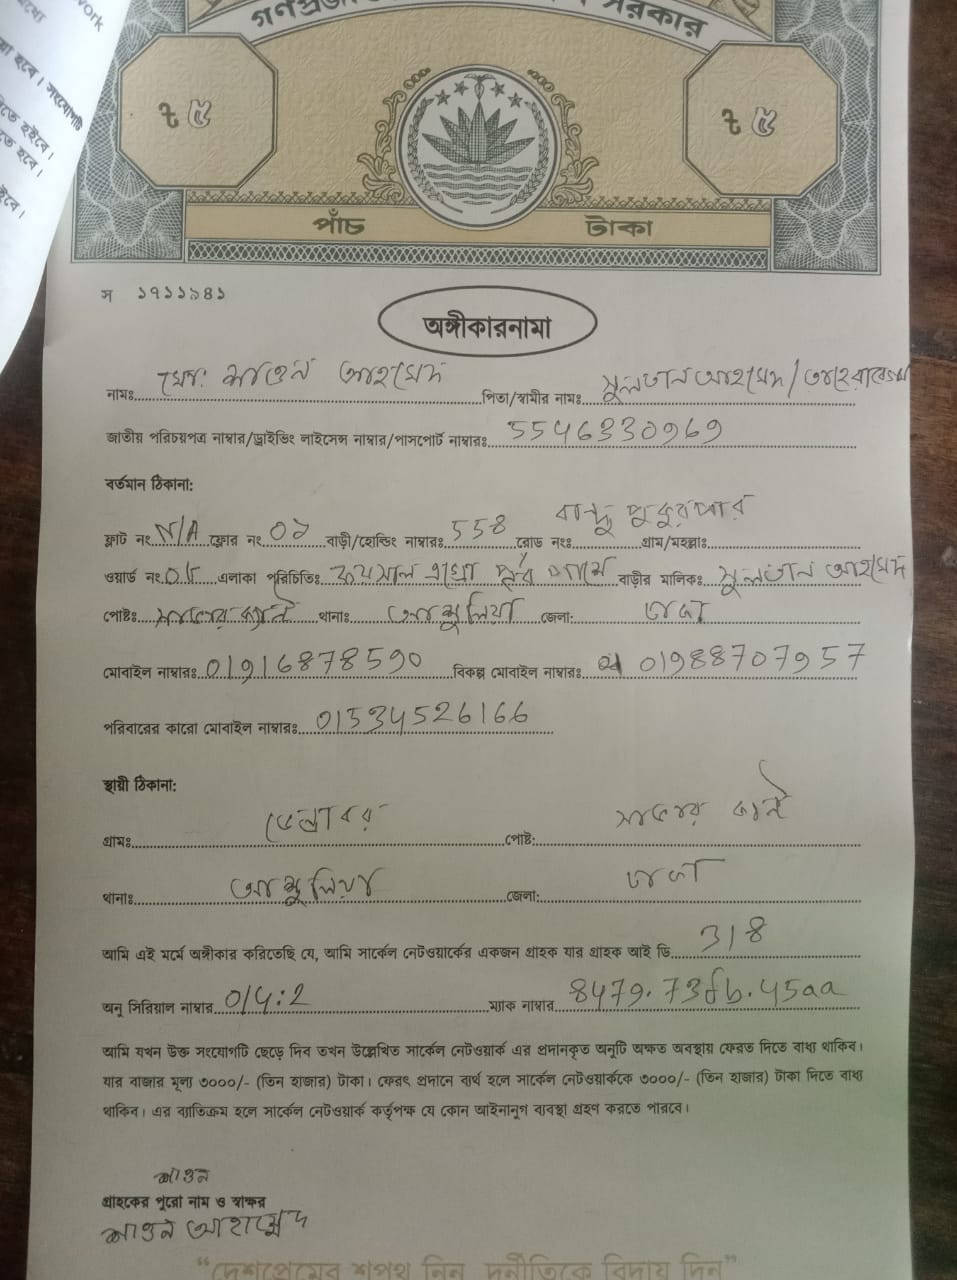 work
হবে। সংযোগটি
তে হইবে।
তে হবে।
ইবে।
গণপ্রজা সরকার
৳ ৫ ৳ ৫
পাঁচ টাকা
স ১৭১১৯৪১
অঙ্গীকারনামা
নামঃ মোঃ শাওন আহমেদ পিতা/স্বামীর নামঃ সুলতান আহমেদ/
জাতীয় পরিচয়পত্র নাম্বার/ড্রাইভিং লাইসেন্স নাম্বার/পাসপোর্ট নাম্বারঃ 5546330969
বর্তমান ঠিকানা:
ফ্লাট নং N/A ফ্লোর নং 0১ বাড়ী/হোল্ডিং নাম্বারঃ ৫৫৪ রোড নংঃ গ্রাম/মহল্লাঃ পুকুরপার
ওয়ার্ড নং 0৫ এলাকা পরিচিতিঃ এগ্রো পাশে বাড়ীর মালিকঃ সুলতান আহমেদ
পোষ্টঃ থানাঃ আশুলিয়া জেলা: ঢাকা
মোবাইল নাম্বারঃ 01916878590 বিকল্প মোবাইল নাম্বারঃ 01988707957
পরিবারের কারো মোবাইল নাম্বারঃ 01534526166
স্থায়ী ঠিকানা:
গ্রামঃ পোষ্ট:
থানাঃ আশুলিয়া জেলা: ঢাকা
আমি এই মর্মে অঙ্গীকার করিতেছি যে, আমি সার্কেল নেটওয়ার্কের একজন গ্রাহক যার গ্রাহক আই ডি 318
অনু সিরিয়াল নাম্বার 0/4:2 ম্যাক নাম্বার 8479.73db.45aa
আমি যখন উক্ত সংযোগটি ছেড়ে দিব তখন উল্লেখিত সার্কেল নেটওয়ার্ক এর প্রদানকৃত অনুটি অক্ষত অবস্থায় ফেরত দিতে বাধ্য থাকিব।
যার বাজার মূল্য ৩০০০/- (তিন হাজার) টাকা। ফেরৎ প্রদানে ব্যর্থ হলে সার্কেল নেটওয়ার্ককে ৩০০০/- (তিন হাজার) টাকা দিতে বাধ্য
থাকিব। এর ব্যতিক্রম হলে সার্কেল নেটওয়ার্ক কর্তৃপক্ষ যে কোন আইনানুগ ব্যবস্থা গ্রহণ করতে পারবে।
শাওন
গ্রাহকের পুরো নাম ও স্বাক্ষর
শাওন আহমেদ
“দেশপ্রেমের শপথ নিন, দুর্নীতিকে বিদায় দিন”